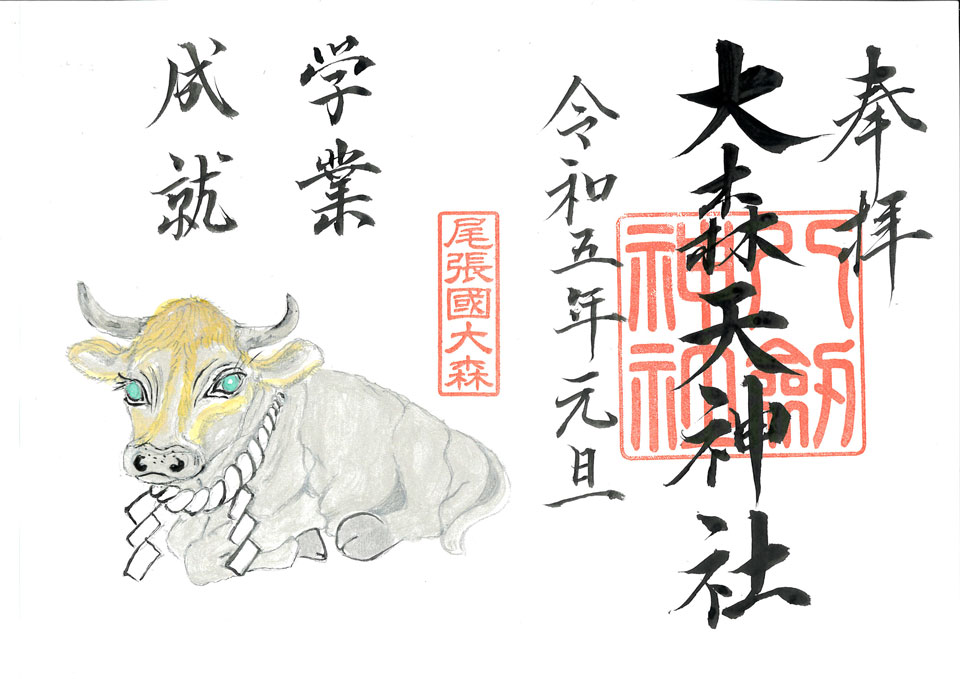 奉拝
大森天神社
八劔神社
令和五年元旦
尾張國大森
学業
成就